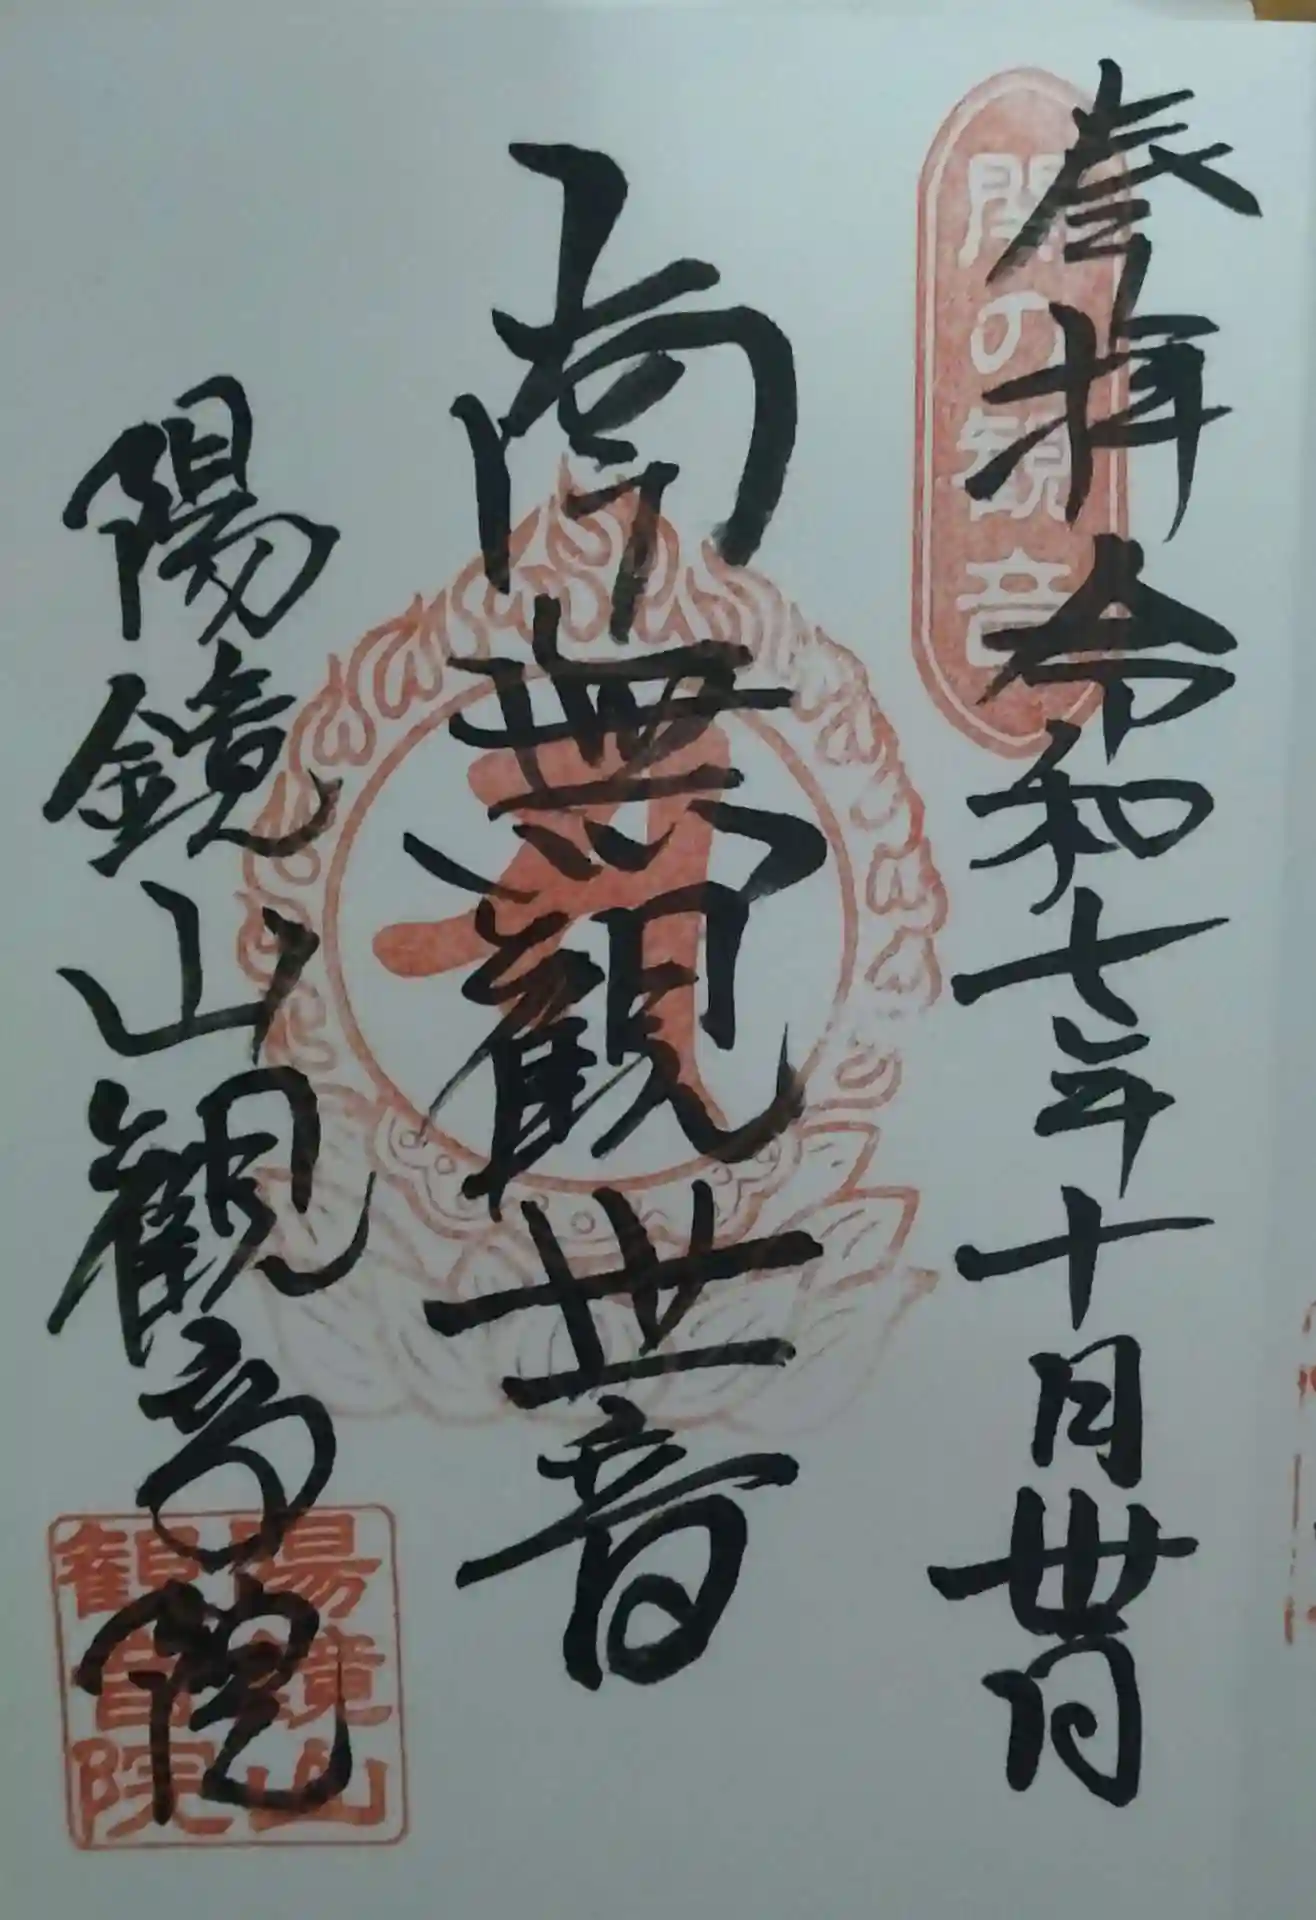 の観音
奉拝 令和七年十月卅日
南無観世音
陽鏡山観音院
陽鏡山
観音院